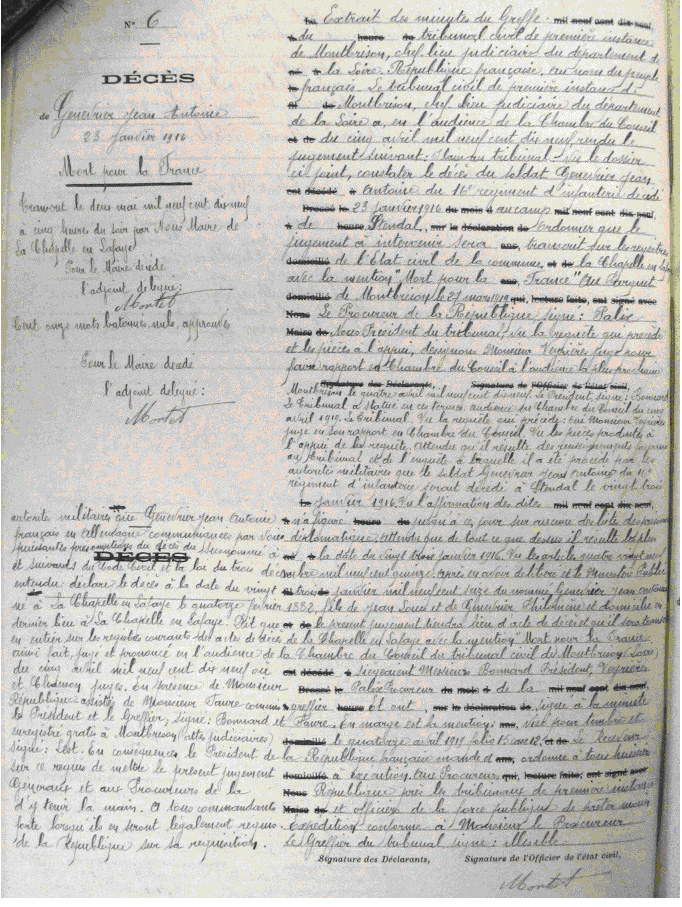 N° 6
DÉCÈS
de Genevrier Jean Antoine
23 Janvier 1916
Mort pour la France
Transcrit le deux mai mil neuf cent dix neuf
à cinq heures du soir par Nous Maire de
La Chapelle en Lafaye
Pour le Maire décédé
l'adjoint délégué :
Montet
Cent onze mots batonnés nuls, approuvés
Pour le Maire décédé
l'adjoint délégué :
Montet
Extrait des minutes du Greffe mil neuf cent dix-neuf,
du heure du tribunal civil de première instance
de Montbrison, chef lieu judiciaire du département de
la Loire. République française. Au nom du peuple
français. Le tribunal civil de première instance de
Montbrison, chef lieu judiciaire du département
de la Loire a, en l'audience de la Chambre du Conseil
du cinq avril mil neuf cent dix neuf, rendu le
jugement suivant : Vu le dossier
ci joint, constater le décès du soldat Genevrier Jean
est décédé Antoine du 16e régiment d'infanterie décédé
Dressé le 23 janvier 1916 du mois d au camp mil neuf cent dix-neuf,
de heure Stendal, sur la déclaration de Ordonner que le
jugement à intervenir sera transcrit sur les registres
domicilié de l'Etat civil de la commune et de la Chapelle en Lafaye
avec la mention "Mort pour la France" Au Parquet
domicilié de Montbrison le 27 mars 1919 qui, lecture faite, ont signé avec
Nous Le Procureur de la République signé : Palix
Maire de Nous President du tribunal, Vu la requête qui précède
et les pièces à l'appui, désignons Monsieur Verrières juge pour
faire rapport en Chambre du Conseil à l'audience la plus prochaine
Signature des Déclarants, Signature de l'Officier de l'état civil,
Montbrison le quatre avril mil neuf cent dix neuf. Le President, signé : Bonnard
Le Tribunal a statué en ces termes audience du Chambre du Conseil du cinq
avril 1919. Le Tribunal. Vu la requête qui précède. Oui Monsieur Verrières
juge en son rapport en Chambre du Conseil Vu les pièces produites à
l'appui de la requête. Attendu qu'il résulte des renseignements fournis
au tribunal et de l'enquête à laquelle il a été procédé par les
autorités militaires que le soldat Genevrier Jean Antoine du 16e
régiment d'infanterie serait décédé à Stendal le vingt trois
janvier 1916. Vu l'affirmation des dites mil neuf cent dix-neuf,
autorités militaires que Genevrier Jean Antoine n'a figuré heure jusqu'à ce jour sur aucune des listes des prisonniers
français en Allemagne communiquées par voie diplomatique. Attendu que de tout ce que dessus il résulte les plus
puissantes présomptions du décès du susnommé à la date du vingt trois janvier 1916. Vu les arts. les quatre vingt neuf
DÉCÈS
et suivants du Code Civil et la loi du trois décembre mil neuf cent quinze. Après en avoir délibéré et le Ministère Public
entendu : déclare le décès à la date du vingt trois janvier mil neuf cent seize du nommé Genevrier Jean Antoine
né à La Chapelle en Lafaye le quatorze février 1882, fils de Jean Louis et de Genevrier Philomène et domicilié en
dernier lieu à La Chapelle en Lafaye. Dit que le présent jugement tiendra lieu d'acte de décès et qu'il sera transcrit
en entier sur les registres courants des actes de décès de la Chapelle en Lafaye avec la mention Mort pour la France
ainsi fait, jugé et prononcé en l'audience de la Chambre du Conseil du tribunal civil de Montbrison Loire,
du cinq avril mil neuf cent dix neuf ou est décédé siégeaient Messieurs Bonnard Président, Verrières
et juges. En présence de Monsieur Dressé le Palix Procureur du mois d de la mil neuf cent dix-neuf,
République assistés de Monsieur Favre commis greffier heure et ont, sur la déclaration de signé à la minute
les President et le Greffier, signé : Bonnard et Favre. En marge est la mention : visé pour timbre et
enregistré gratis à Montbrison (actes judiciaires) domicilié le quatorze avril 1919 folio 15 case 12. et de Le Receveur
signé : Lest. En conséquence le Président de la République française mande et ordonne à tous huissiers
sur ce requis de mettre le présent jugement domicilié à exécution. Aux Procureurs qui, lecture faite, ont signé avec
Généraux et aux Procureurs de la Nous République près les tribunaux de première instance
d'y tenir la main. A tous commandants Maire de et officiers de la force publique de prêter main
forte lorsqu'ils en seront légalement requis. Expédition conforme à Monsieur le Procureur
de la République sur sa réquisition. Le Greffier du tribunal signé : illisible
Signature des Déclarants, Signature de l'Officier de l'état civil,
Montet